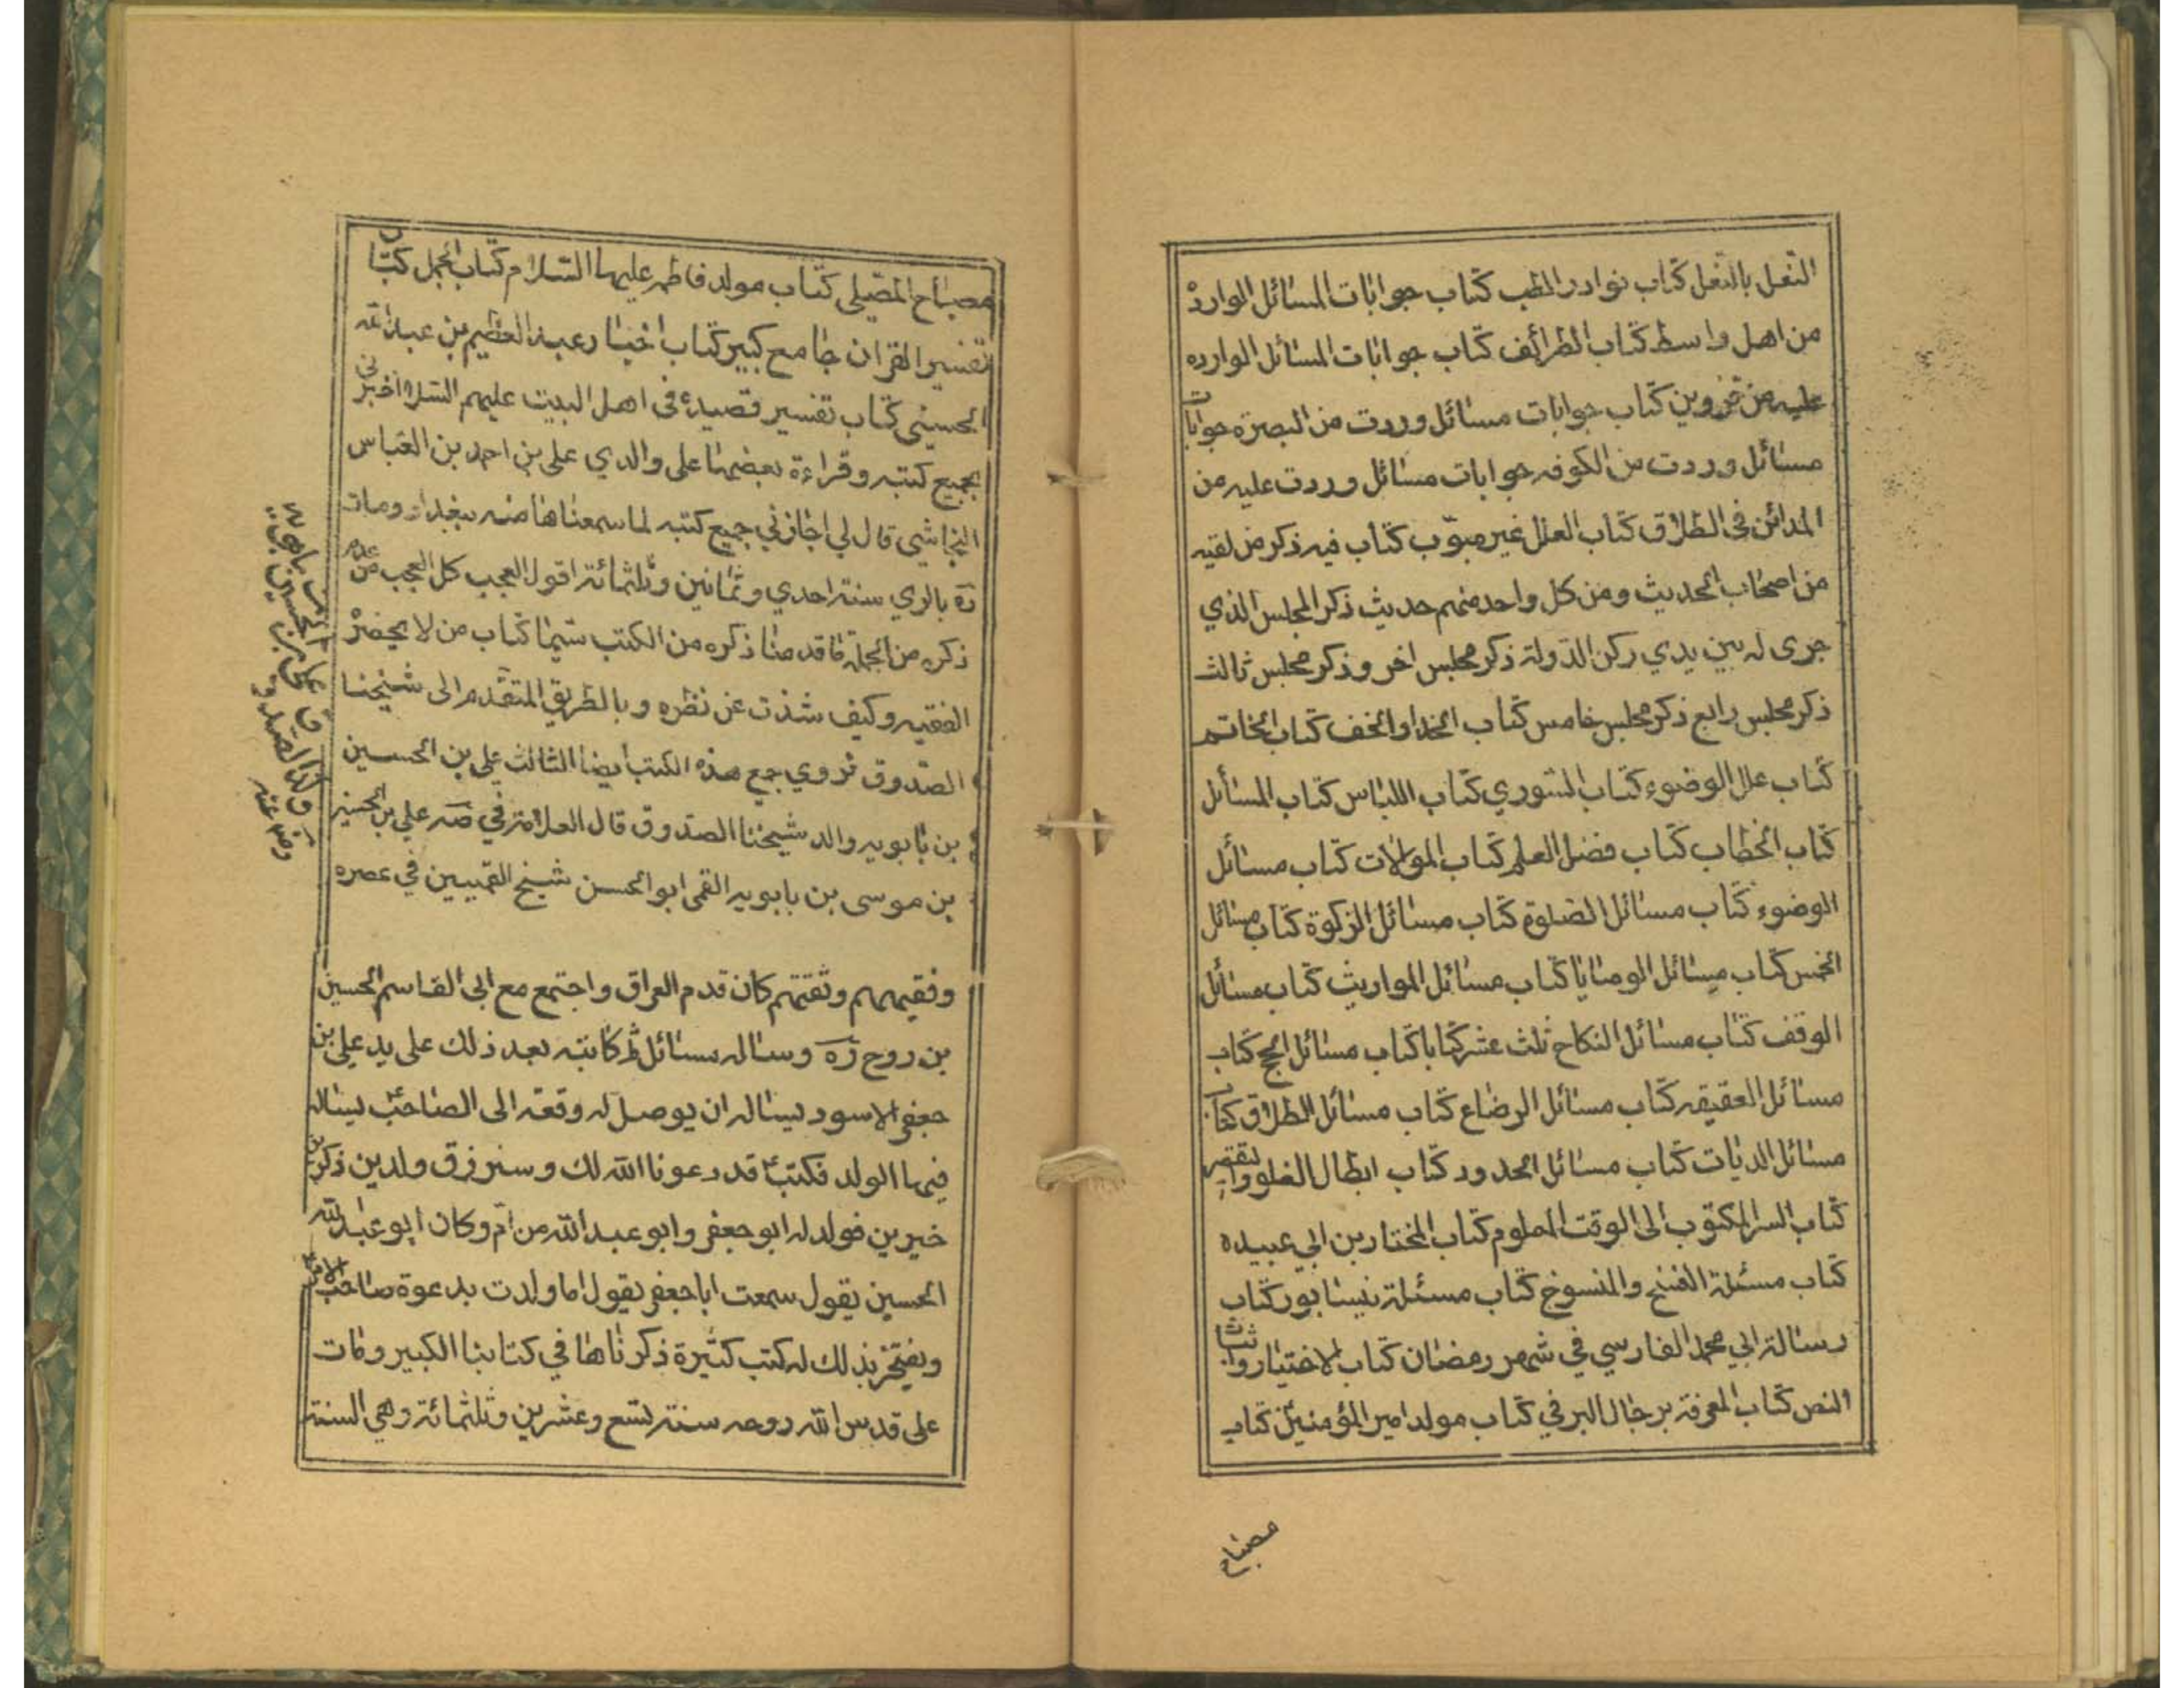 النعل بالنعل كتاب نوادر الطب كتاب جوابات المسائل الواردة
من اهل واسط كتاب الطرائف كتاب جوابات المسائل الوارده
عليه من قزوين كتاب جوابات مسائل وردت من البصرة جوابات
مسائل وردت من الكوفه جوابات مسائل وردت عليه من
المدائن في الطلاق كتاب العلل غير مبوّب كتاب فيه ذكر من لقيه
من اصحاب الحديث ومن كل واحد منهم حديث ذكر المجلس الذي
جرى له بين يدي ركن الدولة ذكر مجلس اخر وذكر مجلس ثالث
ذكر مجلس رابع ذكر مجلس خامس كتاب الحذا والخف كتاب الخاتم
كتاب علل الوضوء كتاب الشوري كتاب اللباس كتاب المسائل
كتاب الخطاب كتاب فضل العلم كتاب الموالات كتاب مسائل
الوضوء كتاب مسائل الصلوة كتاب مسائل الزكوة كتاب مسائل
الخمس كتاب مسائل الوصايا كتاب مسائل المواريث كتاب مسائل
الوقف كتاب مسائل النكاح ثلث عشر كتابا كتاب مسائل الحج كتاب
مسائل العقيقه كتاب مسائل الرضاع كتاب مسائل الطلاق كتاب
مسائل الديات كتاب مسائل الحدود كتاب ابطال الغلو والتقصير
كتاب السر المكتوب الى الوقت المعلوم كتاب المختار بن ابي عبيده
كتاب مسئلة الفسخ والمنسوخ كتاب مسئلة نيسابور كتاب
رسالة ابي محمد الفارسي في شهر رمضان كتاب الاختيار واثبات
النص كتاب المعرفة برجال البرقي كتاب مولد امير المؤمنين كتاب
مصباح
مصباح المصلي كتاب مولد فاطمه عليها السلام كتاب الجمل كتاب
تفسير القران جامع كبير كتاب اخبار عبد العظيم بن عبد الله
الحسيني كتاب تفسير قصيدة في اهل البيت عليهم السلام اخبرني
بجميع كتبه وقراءة بعضها على والدي علي بن احمد بن العباس
النجاشي قال لي اجازني جميع كتبه لما سمعناها منه ببغداد ومات
ره بالري سنة احدي وثمانين وثلثمائة اقول العجب كل العجب من عدم
ذكره من الجملة ما قدمنا ذكره من الكتب سيما كتاب من لا يحضره
الفقيه وكيف شذت عن نظره وبالطريق المتقدم الى شيخنا
الصدوق نروي جمع هذه الكتب ايضا الثالث علي بن الحسين
بن بابويه والد شيخنا الصدوق قال العلامة في صه علي بن الحسين
بن موسى بن بابويه القمي ابو الحسن شيخ القميين في عصره
وفقيههم وثقتهم كان قدم العراق واجتمع مع ابي القاسم الحسين
بن روح ره وساله مسائل ثم كاتبه بعد ذلك على يد علي بن
جعفر الاسود يساله ان يوصل له رقعة الى الصاحب يساله
فيها الولد فكتب قد دعونا الله لك وسترزق ولدين ذكرين
خيرين فولد له ابو جعفر وابو عبد الله من ام وكان ابو عبد الله
الحسين يقول سمعت ابا جعفر يقول اما ولدت بدعوة صاحب الامر
ويفتخر بذلك له كتب كثيرة ذكرناها في كتابنا الكبير ومات
علي قدس الله روحه سنة تسع وعشرين وثلثمائة وهي السنة